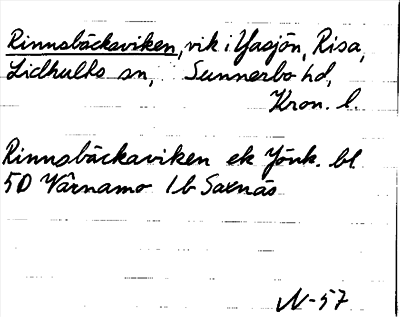 Rinnabäcksviken, vik i Yasjön, Risa,
Lidhults sn, Sunnerbo hd,
Kron. l.
Rinnabäckaviken ek Jönk. bl
5D Värnamo 1b Saxnäs
N-57